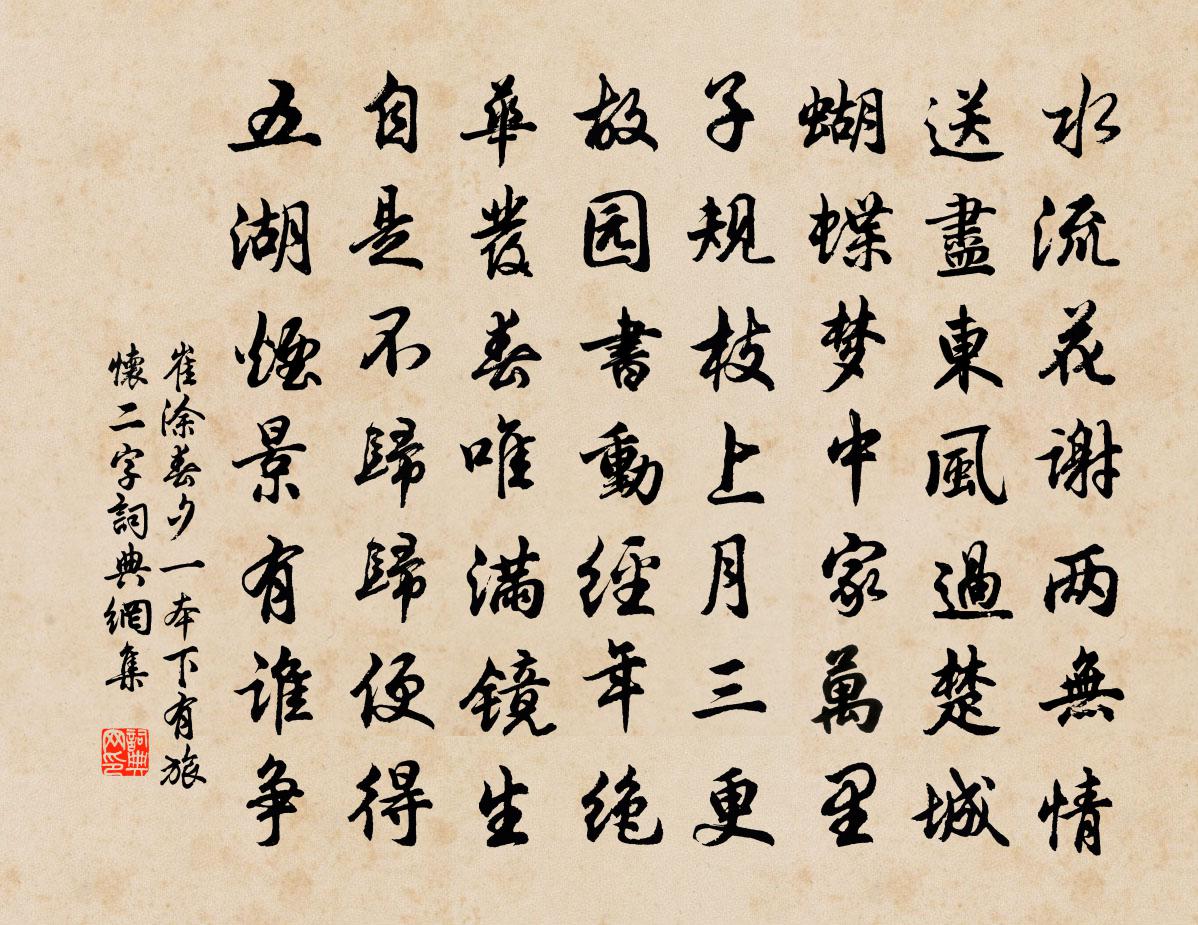 水流花謝两無情
送盡東風過楚城
蝴蝶梦中家萬里
子規枝上月三更
故园書動經年絶
華發春唯滿鏡生
自是不歸歸便得
五湖煙景有誰争
崔涂春夕一本下有旅
懷二字詞典網集
詞典网印